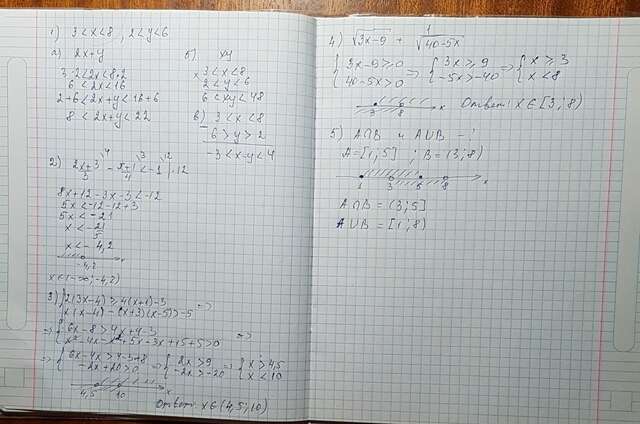 1) 3<x<8, 2<y<6
а) 2x+y
3·2<2x<8·2
6<2x<16
2+6<2x+y<16+6
8<2x+y<22
б) xy
× 3<x<8
2<y<6
6<xy<48
в) 3<x<8
6>y>2
-3<x-y<4
2) (2x+3)/3 - (x+1)/4 < -1 |·12
8x+12-3x-3<-12
5x<-12-12+3
5x<-21
x<-21/5
x<-4,2
-4,2 x
x∈(-∞;-4,2)
3) { 2(3x-4)≥4(x+1)-3 =>
x(x-4)-(x+3)(x-5)>-5
=> { 6x-8>4x+4-3 =>
x²-4x-x²+5x-3x+15+5>0
=> { 6x-4x>4-3+8 => { 2x>9 => { x>4,5
-2x+20>0 -2x>-20 x<10
4,5 10 x
Ответ: x∈(4,5;10)
4) √(3x-9) + 1/√(40-5x)
{ 3x-9≥0 => { 3x≥9 => { x≥3
40-5x>0 -5x>-40 x<8
3 8 x Ответ: x∈[3;8)
5) A∩B и A∪B - ?
A=[1;5] ; B=(3;8)
1 3 5 8 x
A∩B = (3;5]
A∪B = [1;8)